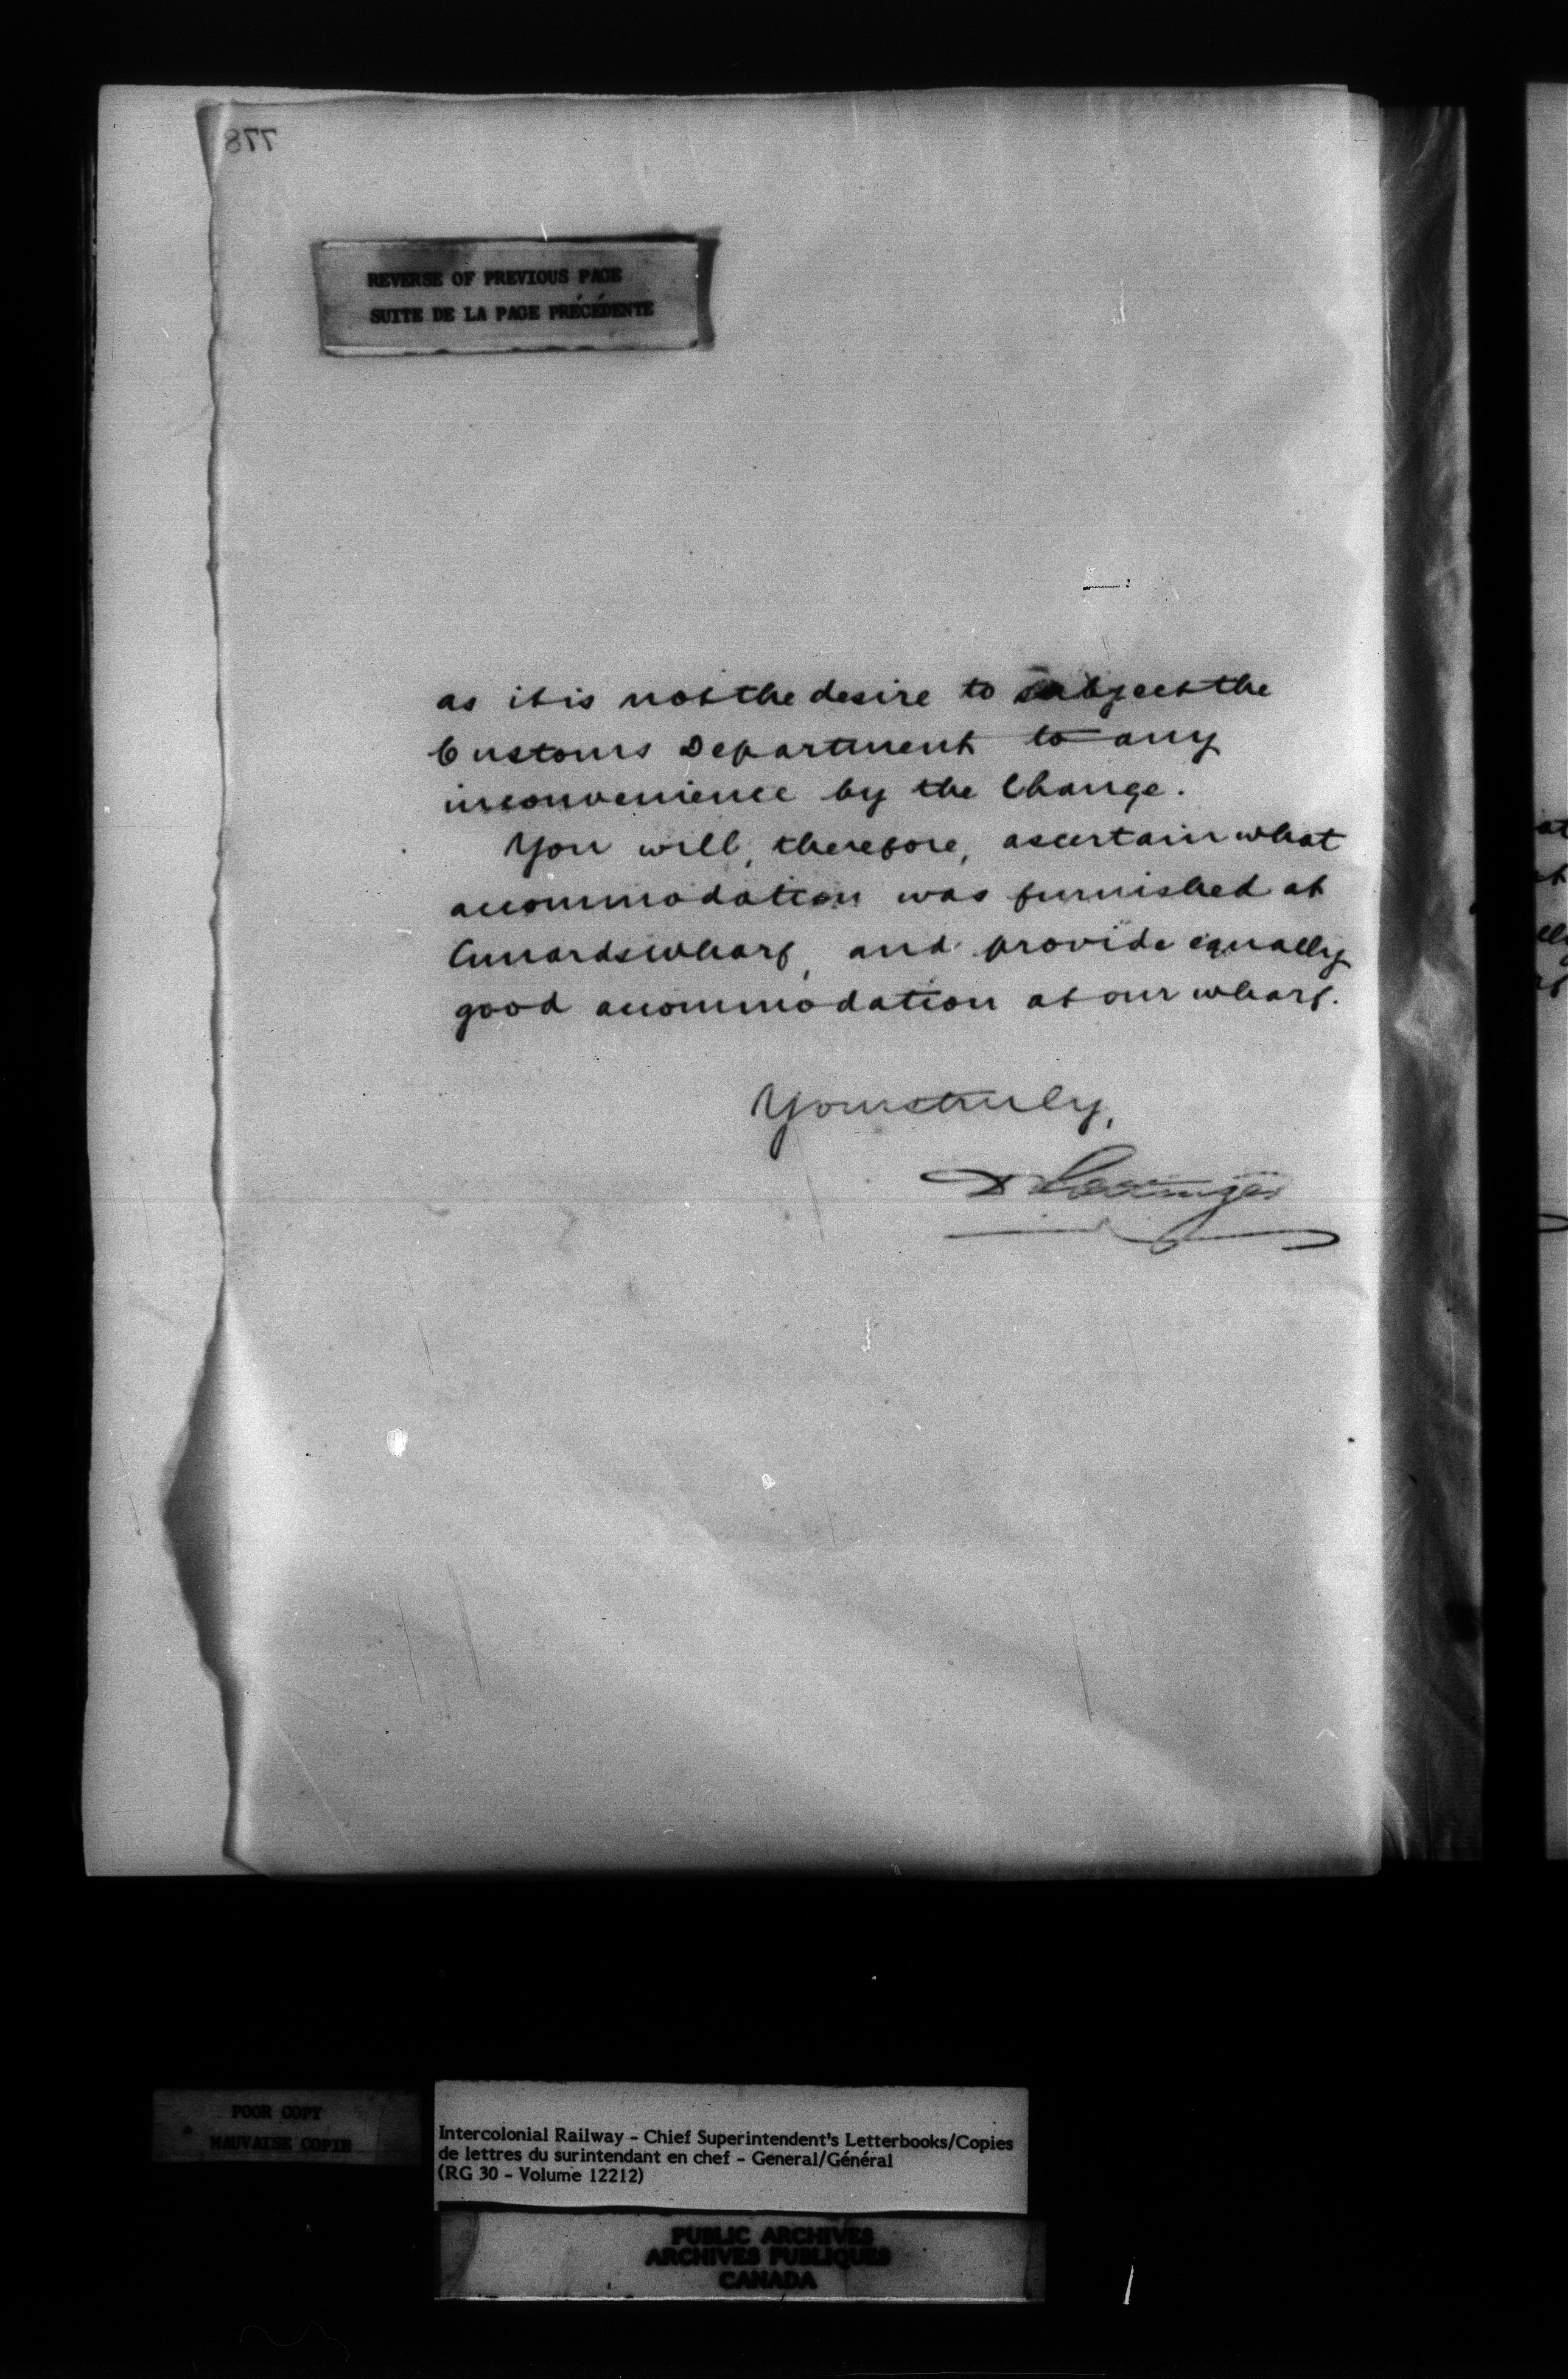 778
REVERSE OF PREVIOUS PAGE
SUITE DE LA PAGE PRÉCÉDENTE
as it is not the desire to subject the
Customs Department to any
inconvenience by the Change.
You will, therefore, ascertain what
accommodation was furnished at
Cunards wharf, and provide equally
good accommodation at our wharf.
Yours truly,
D Pottinger
POOR COPY
MAUVAISE COPIE
Intercolonial Railway - Chief Superintendent's Letterbooks/Copies
de lettres du surintendant en chef - General/Général
(RG 30 - Volume 12212)
PUBLIC ARCHIVES
ARCHIVES PUBLIQUES
CANADA